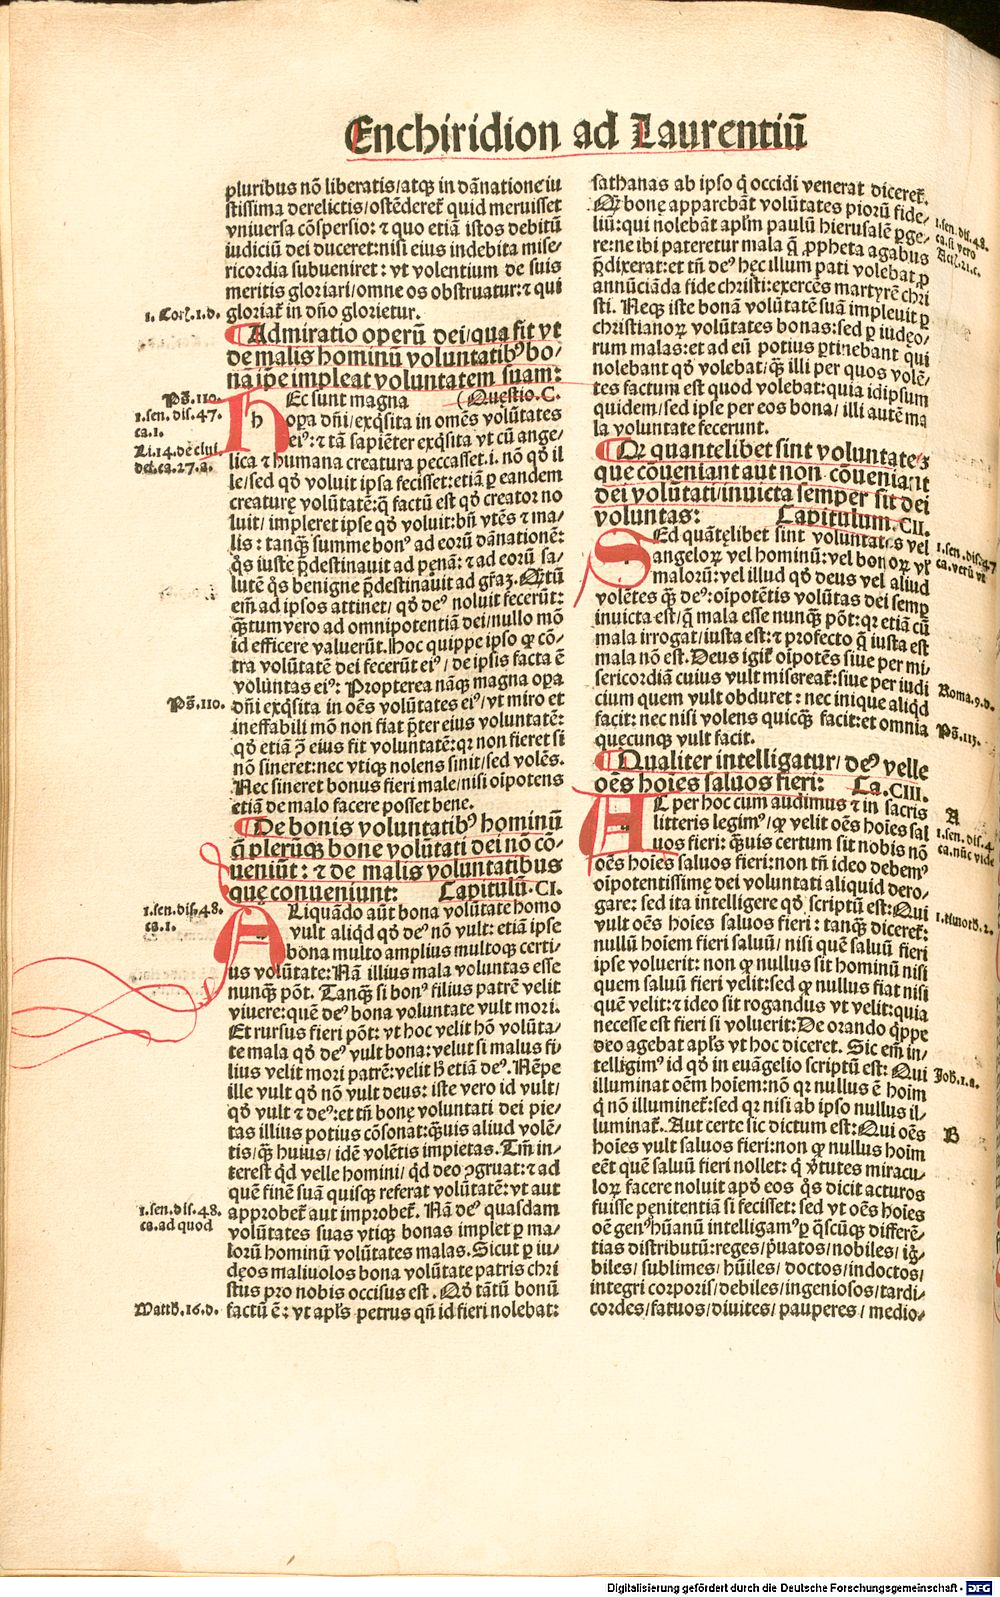 Enchiridion ad Laurentiū
pluribus nō liberatis/atqꝫ in dānatione iu
stissima derelictis/ostēderet᷑ quid meruisset
vniuersa cōspersio: ⁊ quo etiā istos debitū
iudiciū dei duceret:nisi eius indebita mise⸗
ricordia subueniret: vt volentium de suis
meritis gloriari/omne os obstruatur:⁊ qui
1. Corĩ.1.d. gloriat᷑ in dño glorietur.
¶Admiratio operū dei/qua fit vt
de malis hominū voluntatibꝰ bo/
nā ip̄e impleat voluntatem suam:
Ps̄.110. HEc sunt magna (Questio.C.
1.sen.dis.47. oꝑa dñi/exq̄sita in om̄es volūtates
ca.1. eiꝰ:⁊ tā sapiēter exq̄sita vt cū ange/
Li.14.de ciui.
dei.ca.27.a. lica ⁊ humana creatura peccasset.i. nō qđ il
le/sed qđ voluit ipsa fecisset:etiā ꝑ eandem
creaturę volūtatē:q̄ factū est qđ creator no
luit/ impleret ipse qđ voluit:bñ vtēs ⁊ ma/
lis: tanꝙ̄ summe bonꝰ ad eorū dānationē:
q̄s iuste p̄destinauit ad penā: ⁊ ad eorū sa/
lutē q̄s benigne p̄destinauit ad gr̄aꝫ. Q̄tū
em̄ ad ipsos attinet/ qđ deꝰ noluit fecerūt:
ꝙ̄tum vero ad omnipotentiā dei/nullo mō
id efficere valuerūt. Hoc quippe ipso ꝙ cō/
tra volūtatē dei fecerūt eiꝰ/ de ipsis facta ē
voluntas eiꝰ: Propterea nāꝙ magna oꝑa
Ps̄.110. dñi exq̄sita in oēs volūtates eiꝰ/ vt miro et
ineffabili mō non fiat p̄ter eius voluntatē:
qđ etiā 9̄ eius fit voluntatē:qꝛ non fieret si
nō sineret:nec vtiqꝫ nolens sinit/sed volēs.
Nec sineret bonus fieri male/nisi oīpotens
etiā de malo facere posset bene.
¶De bonis voluntatibꝰ hominū
q̄ plerūqꝫ bone volūtati dei nō cō⸗
ueniūt: ⁊ de malis voluntatibus
quę conueniunt: Capitulū.CI.
1.sen.dis.48. ALiquādo aūt bona volūtate homo
ca.1. vult aliq̄d qđ deꝰ nō vult: etiā ipse
bona multo amplius multoqꝫ certi/
us volūtate:Nā illius mala voluntas esse
nunꝙ̄ pōt. Tanꝙ̄ si bonꝰ filius patrē velit
viuere:quē deꝰ bona voluntate vult mori.
Et rursus fieri pōt: vt hoc velit hō volūta⸗
te mala qđ deꝰ vult bona:velut si malus fi⸗
lius velit mori patrē:velit h̄ etiā deꝰ. Nēpe
ille vult qđ nō vult deus: iste vero id vult/
qđ vult ⁊ deꝰ:et tñ bonę voluntati dei pie/
tas illius potius cōsonat:ꝙ̄uis aliud volē⸗
tis/ꝙ̄ huius/ idē volētis impietas. Tm̄ in⸗
terest q̄d velle homini/ q̄d deo ꝯgruat:⁊ ad
quē finē suā quisqꝫ referat volūtatē:vt aut
1.sen.dis.48. approbet᷑ aut improbet᷑. Nā deꝰ quasdam
ca.ad quod voluntates suas vtiqꝫ bonas implet ꝑ ma
lorū hominū volūtates malas. Sicut ꝑ iu⸗
dęos maliuolos bona volūtate patris chri
stus pro nobis occisus est. Qđ tātū bonū
Matth.16.d. factū ē: vt apl̄s petrus qn̄ id fieri nolebat:
sathanas ab ipso q̄ occidi venerat diceret᷑.
Q̄ bonę apparebāt volūtates piorū fide⸗
1.sen.dis.48. liū:qui nolebāt apl̄m paulū hierusalē ꝑge⸗
ca.si vero re:ne ibi pateretur mala q̄ ꝓpheta agabus
Act.21.c. p̄dixerat:et tñ deꝰ hęc illum pati volebat ꝓ
annūciāda fide christi:exercēs martyrē chri
sti. Neqꝫ iste bonā volūtatē suā impleuit ꝑ
christianoꝝ volūtates bonas:sed ꝑ iudęo⸗
rum malas:et ad eū potius ꝑtinebant qui
nolebant qđ volebat/ꝙ̄ illi per quos volē⸗
tes factum est quod volebat:quia idipsum
quidem/sed ipse per eos bona/ illi autē ma
la voluntate fecerunt.
¶Qꝛ quantelibet sint voluntates
que cōueniant aut non cōueniant
dei volūtati/inuicta semper sit dei
voluntas: Capitulum.CII.
1.sen.dis.47 SEd quātęlibet sint voluntates vel
ca.verū vt angeloꝝ vel hominū:vel bonoꝝ vl̄
malorū:vel illud qđ deus vel aliud
volētes ꝙ̄ deꝰ:oīpotētis volūtas dei semꝑ
inuicta est/q̄ mala esse nunꝙ̄ pōt: qꝛ etiā cū
mala irrogat/iusta est:⁊ profecto q̄ iusta est
mala nō est. Deus igit᷑ oīpotēs siue per mi
sericordiā cuius vult misereat᷑:siue per iudi
Roma.9.d. cium quem vult obduret: nec inique aliq̄d
facit: nec nisi volens quicꝙ̄ facit:et omnia
Ps̄.113. quecunqꝫ vult facit.
¶Qualiter intelligatur/ deꝰ velle
oēs hoīes saluos fieri: Ca.CIII.
A AC per hoc cum audimus ⁊ in sacris
1.sen.dis.4 litteris legimꝰ/ꝙ velit oēs hoīes sal
ca.nūc vide uos fieri: ꝙ̄uis certum sit nobis nō
oēs hoīes saluos fieri:non tñ ideo debemꝰ
oīpotentissimę dei voluntati aliquid dero⸗
gare: sed ita intelligere qđ scriptū est:Qui
1.timoth.2. vult oēs hoīes saluos fieri: tanꝙ̄ diceret᷑:
nullū hoīem fieri saluū/ nisi quē saluū fieri
ipse voluerit: non ꝙ nullus sit hominū nisi
quem saluū fieri velit:sed ꝙ nullus fiat nisi
quē velit:⁊ ideo sit rogandus vt velit:quia
necesse est fieri si voluerit:De orando q̄ppe
deo agebat apl̄s vt hoc diceret. Sic em̄ in⸗
telligimꝰ id qđ in euāgelio scriptū est: Qui
Joh.1.a. illuminat oēm hoīem:nō qꝛ nullus ē hoim
q̄ nō illuminet᷑:sed qꝛ nisi ab ipso nullus il⸗
luminat᷑. Aut certe sic dictum est:Qui oēs
B hoīes vult saluos fieri:non ꝙ nullus hoim
eēt quē saluū fieri nollet: q̄ v̄tutes miracu⸗
loꝝ facere noluit apđ eos q̄s dicit acturos
fuisse pęnitentiā si fecisset: sed vt oēs hoīes
oē genꝰ hūanū intelligamꝰ ꝑ q̄scūqꝫ differē⸗
tias distributū:reges/p̄uatos/nobiles/ ig̃⸗
biles/ sublimes/ hūiles/ doctos/indoctos/
integri corporis/debiles/ingeniosos/tardi⸗
cordes/fatuos/diuites/ pauperes/ medio⸗
Digitalisierung gefördert durch die Deutsche Forschungsgemeinschaft - DFG